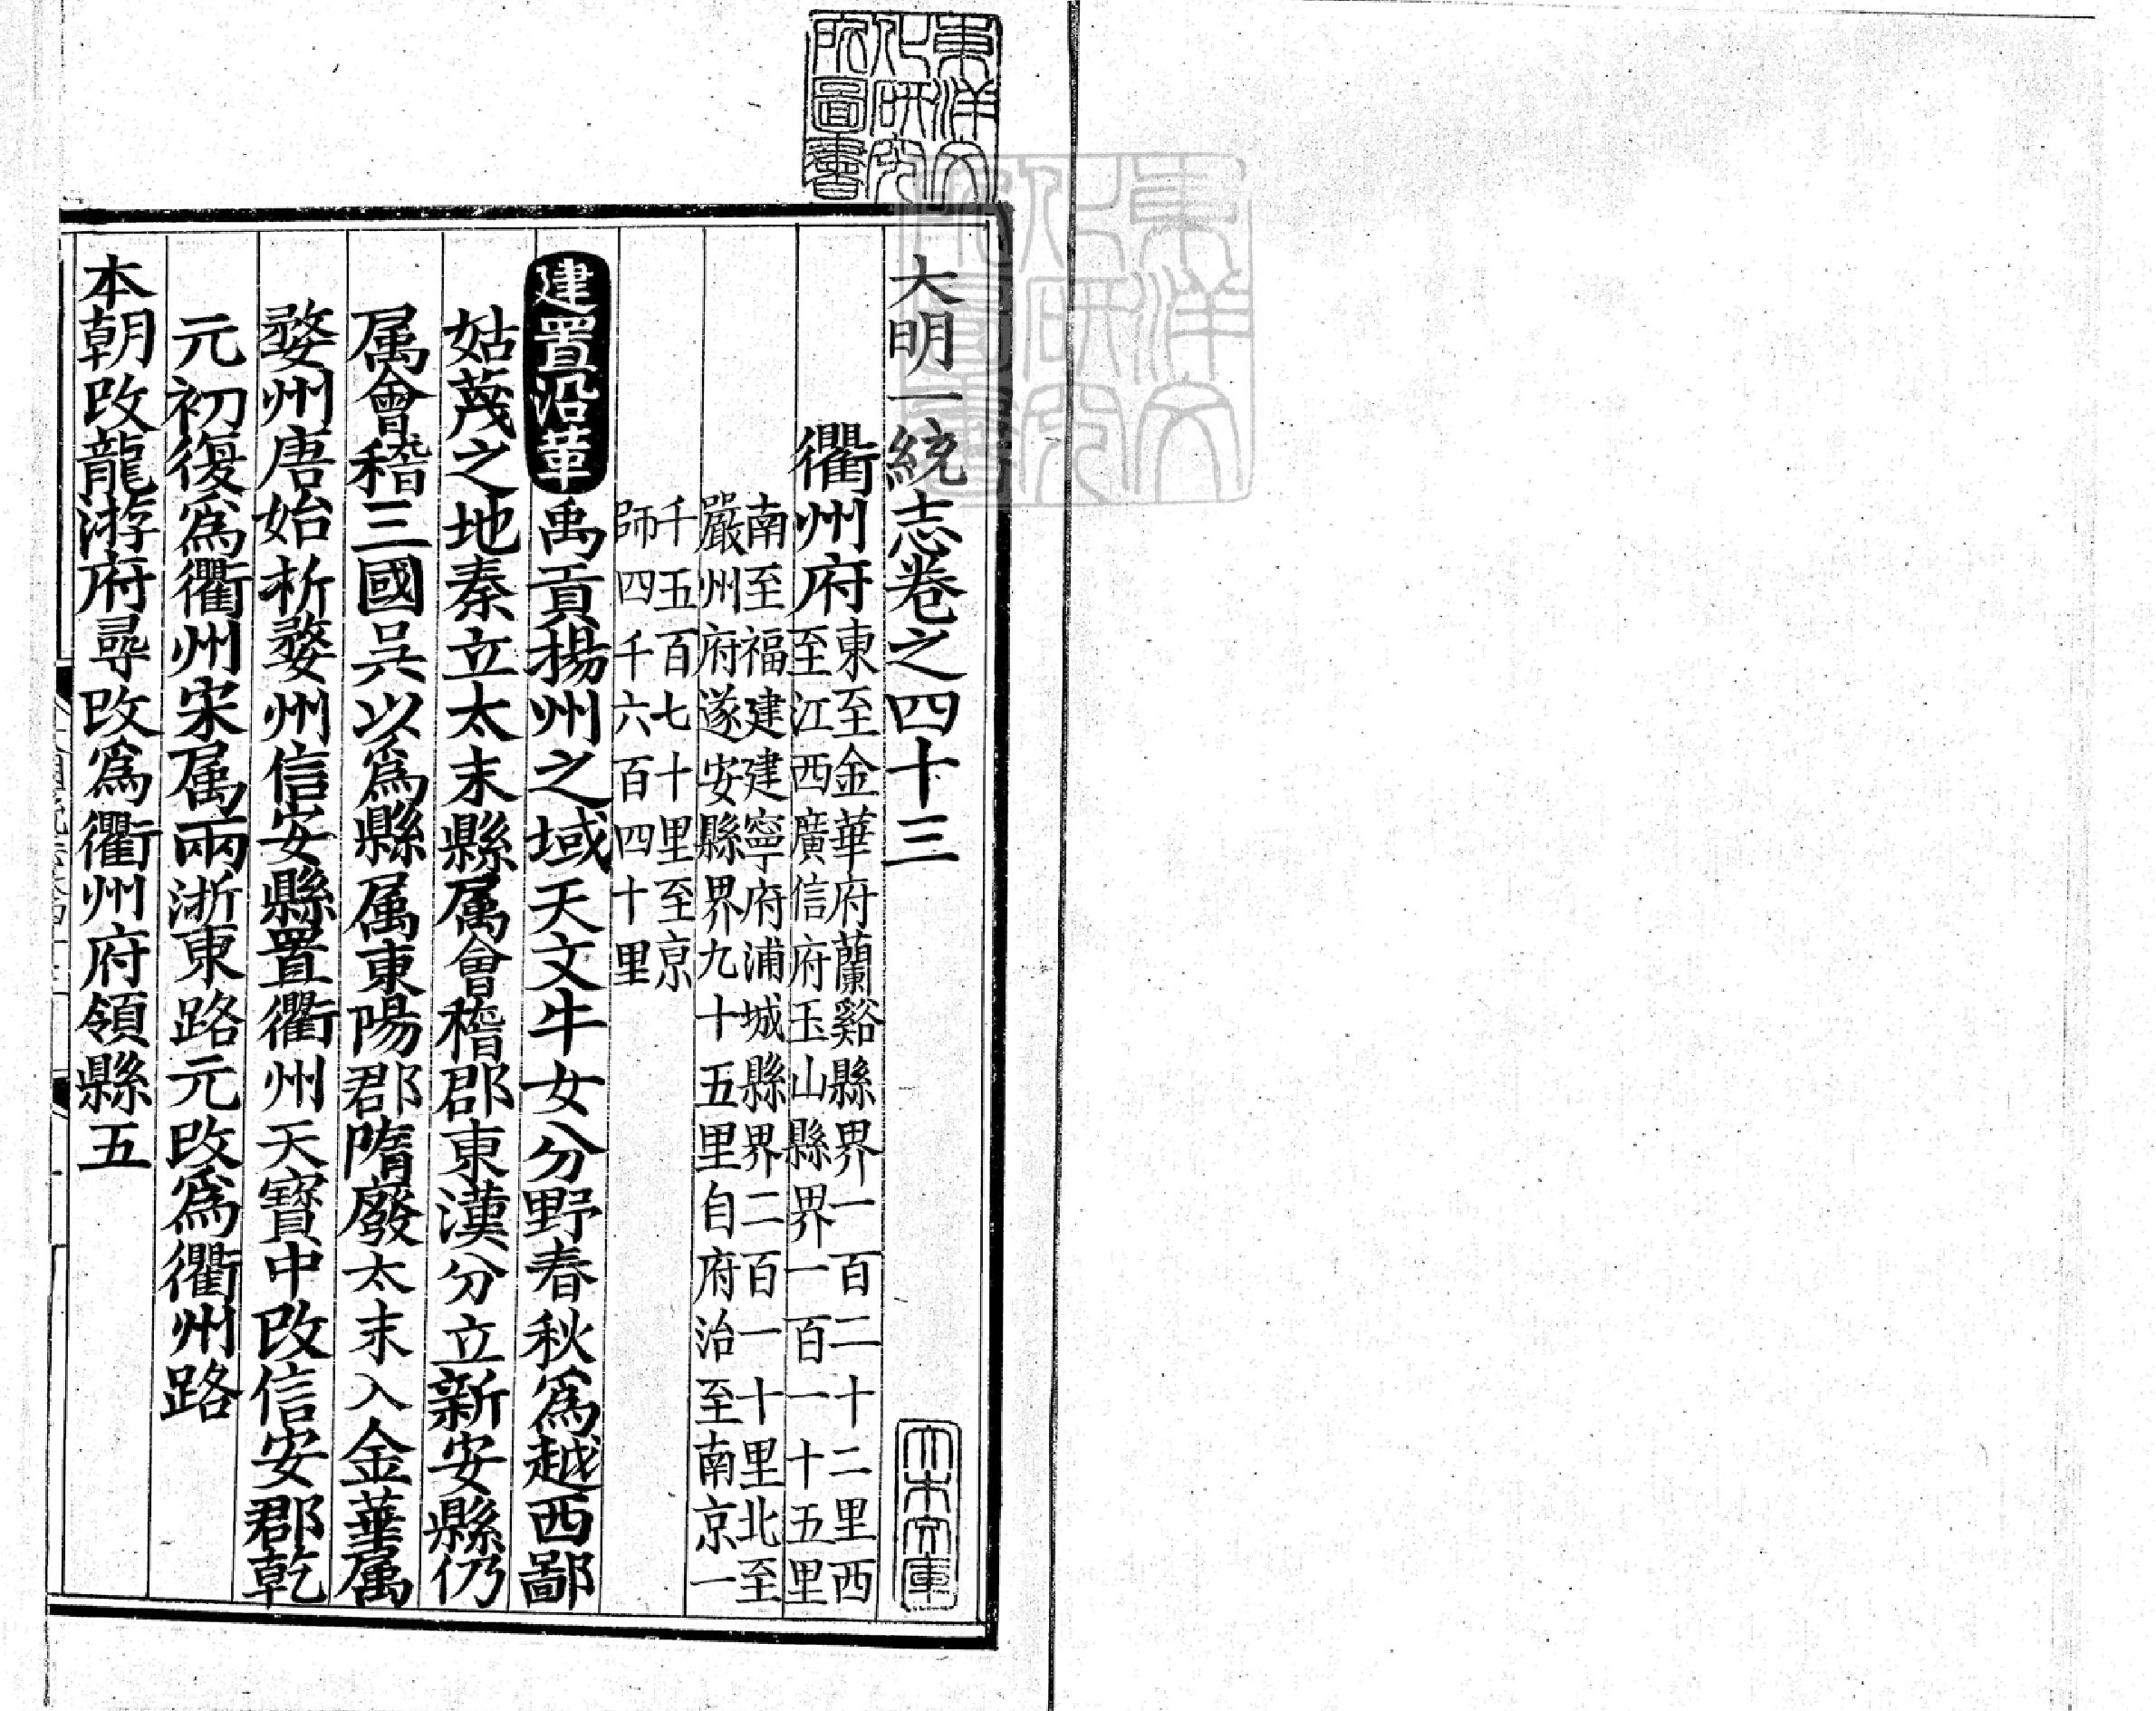 東洋文
化研究
院圖書
大明一統志卷之四十三
大木文庫
衢州府東至金華府蘭谿縣界一百二十二里西
至江西廣信府玉山縣界一百一十五里
南至福建建寧府浦城縣界二百一十里北至
嚴州府遂安縣界九十五里自府治至南京一
千五百七十里至京
師四千六百四十里
建置沿革禹貢揚州之域天文牛女分野春秋爲越西鄙
姑蔑之地秦立太末縣属會稽郡東漢分立新安縣仍
属會稽三國吳以爲縣属東陽郡隋廢太末入金華属
婺州唐始析婺州信安縣置衢州天寶中改信安郡乾
元初復爲衢州宋属兩浙東路元改爲衢州路
本朝改龍游府尋改爲衢州府領縣五